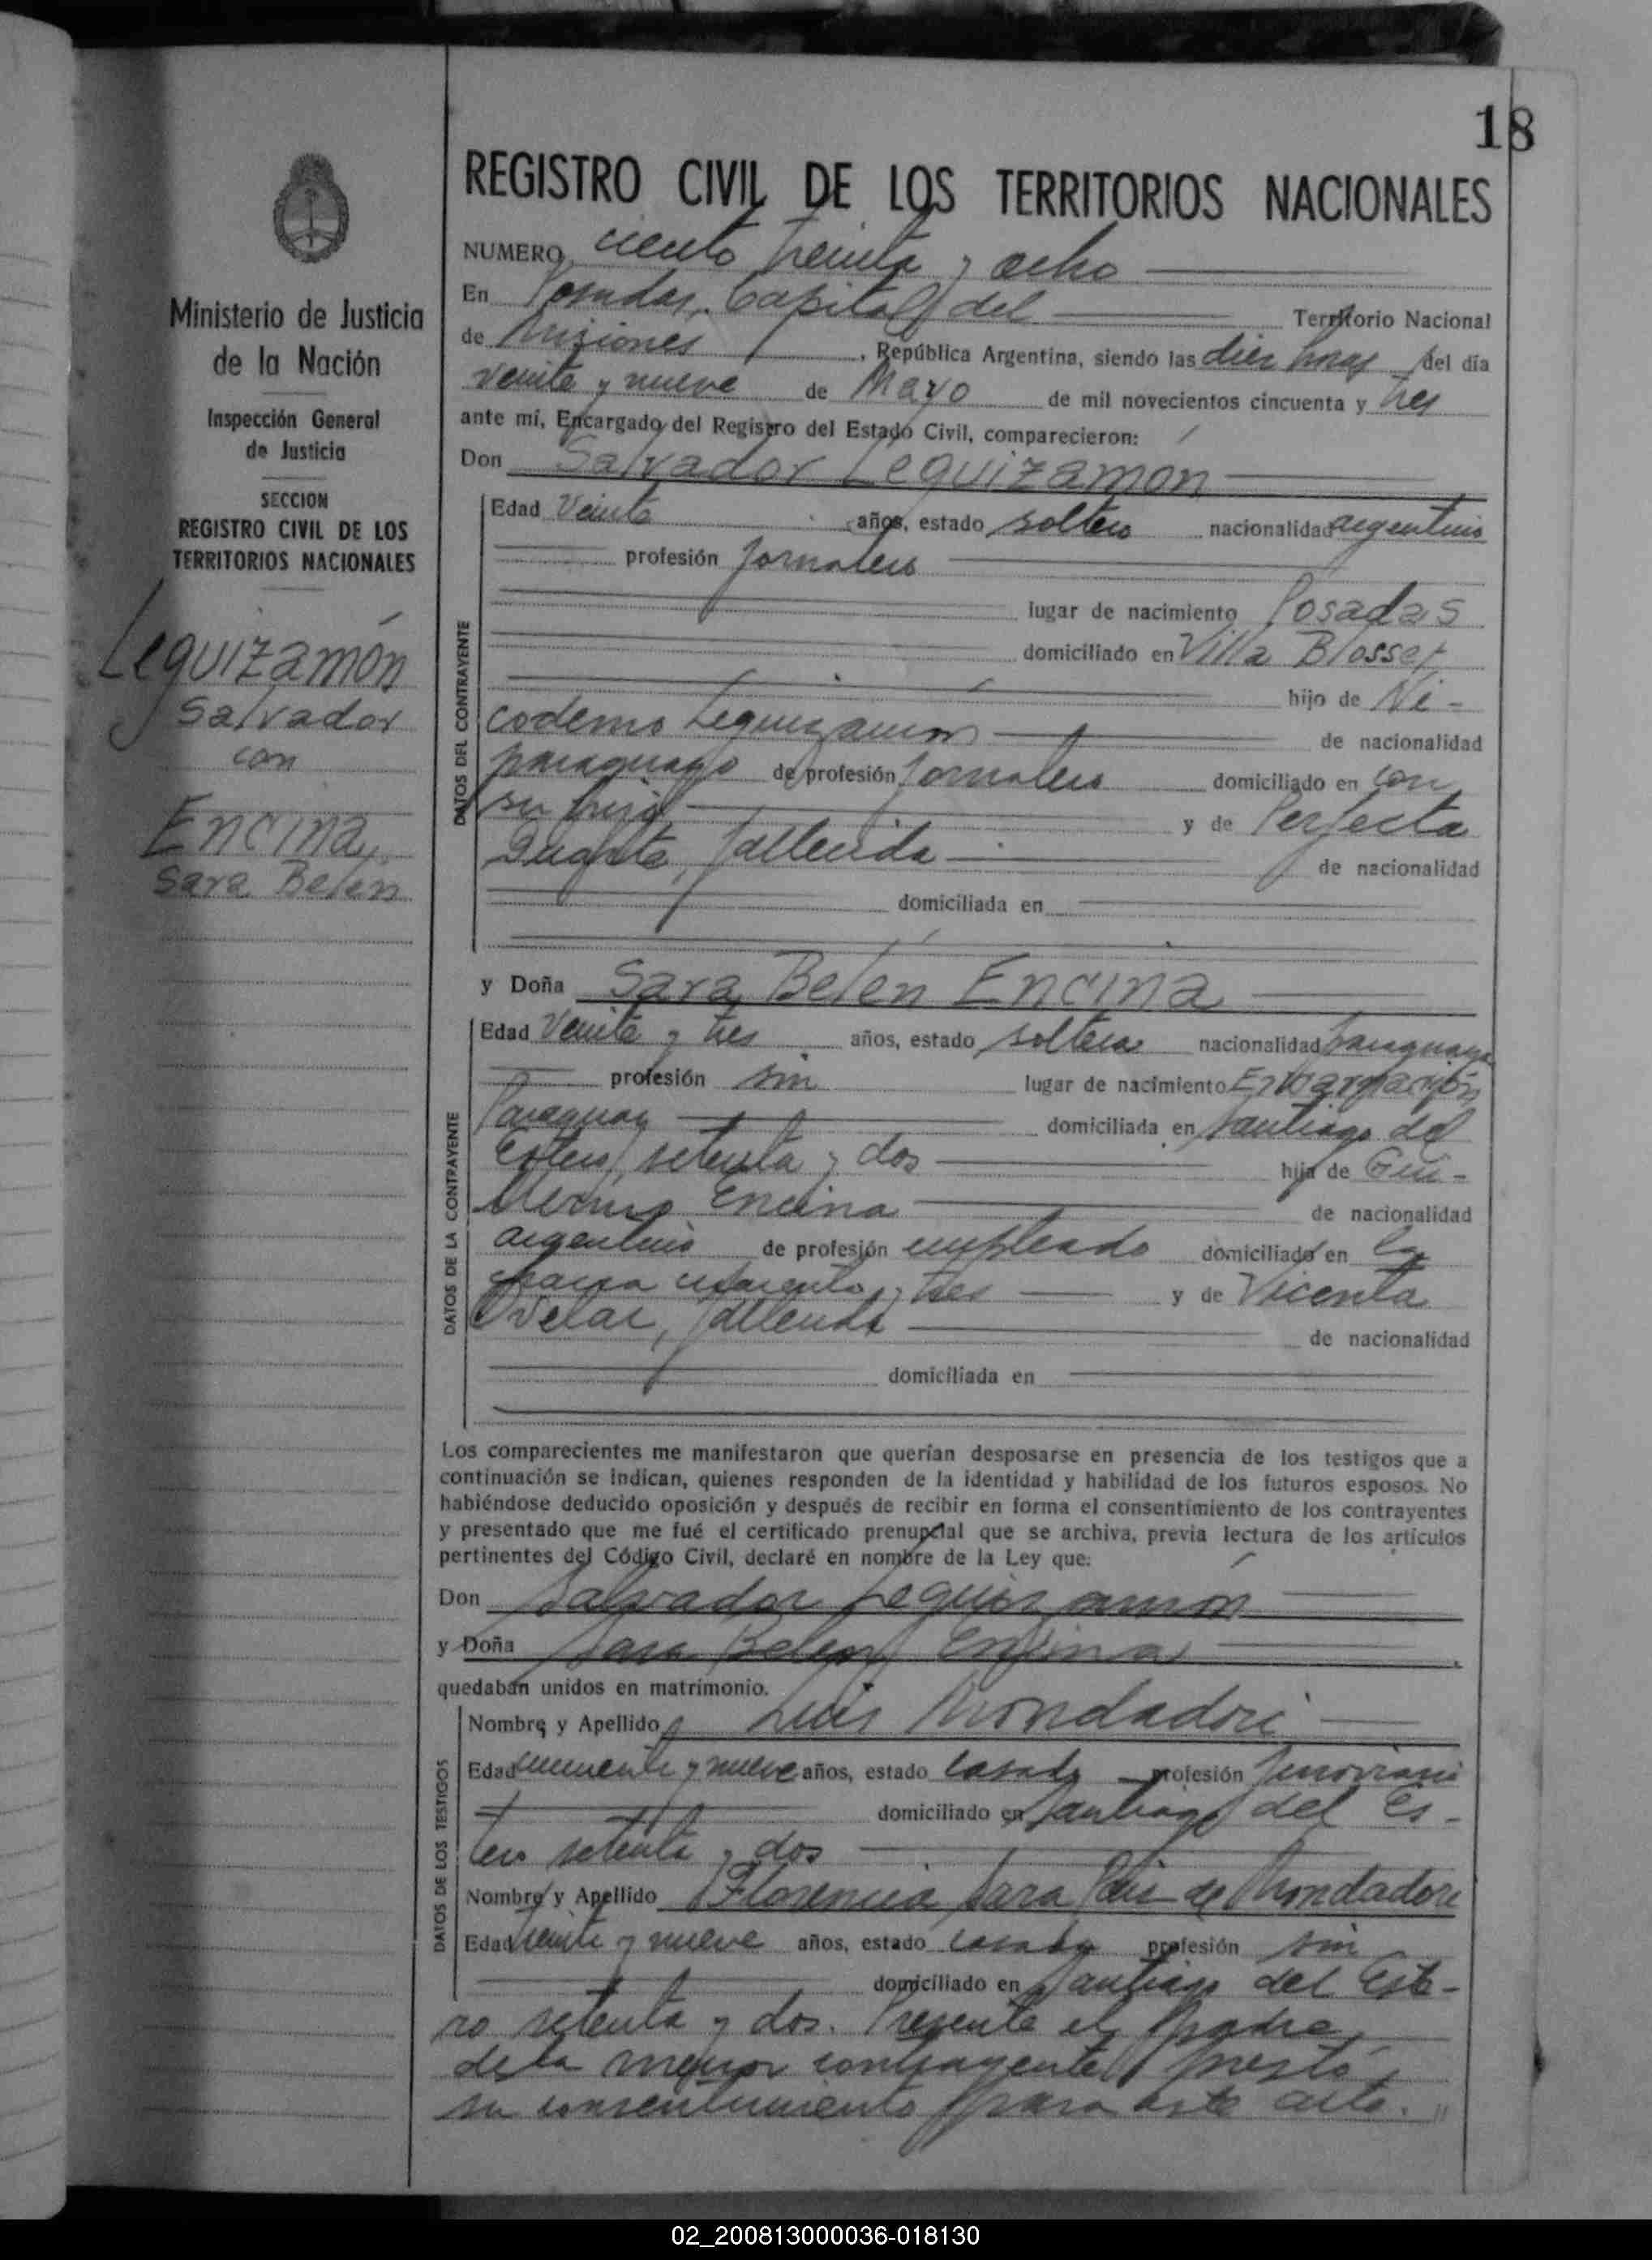 18
REGISTRO CIVIL DE LOS TERRITORIOS NACIONALES
Ministerio de Justicia
de la Nación
Inspección General
de Justicia
SECCION
REGISTRO CIVIL DE LOS
TERRITORIOS NACIONALES
Leguizamón
Salvador
con
Encina,
Sara Belén
NUMERO ciento treinta y ocho
En Posadas, Capital del Territorio Nacional
de Misiones, República Argentina, siendo las diez horas del día
veinte y nueve de Mayo de mil novecientos cincuenta y tres
ante mí, Encargado del Registro del Estado Civil, comparecieron:
Don Salvador Leguizamón
DATOS DEL CONTRAYENTE
Edad Veinte años, estado soltero nacionalidad argentino
profesión Jornalero
lugar de nacimiento Posadas
domiciliado en Villa Blosset
hijo de Ni-
codemo Leguizamón de nacionalidad
paraguayo de profesión Jornalero domiciliado en con
su hijo y de Perfecta
Duarte, fallecida de nacionalidad
domiciliada en
y Doña Sara Belén Encina
DATOS DE LA CONTRAYENTE
Edad Veinte y tres años, estado soltera nacionalidad paraguaya
profesión sin lugar de nacimiento Encarnación
Paraguay domiciliada en Santiago del
Estero setenta y dos hija de Gui-
llermo Encina de nacionalidad
argentino de profesión empleado domiciliado en la
chacra cuarenta y tres y de Vicenta
Ovelar, fallecida de nacionalidad
domiciliada en
Los comparecientes me manifestaron que querían desposarse en presencia de los testigos que a
continuación se indican, quienes responden de la identidad y habilidad de los futuros esposos. No
habiéndose deducido oposición y después de recibir en forma el consentimiento de los contrayentes
y presentado que me fué el certificado prenupcial que se archiva, previa lectura de los artículos
pertinentes del Código Civil, declaré en nombre de la Ley que:
Don Salvador Leguizamón
y Doña Sara Belén Encina
quedaban unidos en matrimonio.
DATOS DE LOS TESTIGOS
Nombre y Apellido Luis Mondadori
Edad cincuenta y nueve años, estado casado profesión ferroviario
domiciliado en Santiago del Es-
tero setenta y dos
Nombre y Apellido Florencia Sara de Mondadori
Edad y nueve años, estado casada profesión sin
domiciliado en Santiago del Este-
ro setenta y dos. Presente el padre
de la menor contrayente prestó
su consentimiento para este acto.
02_200813000036-018130